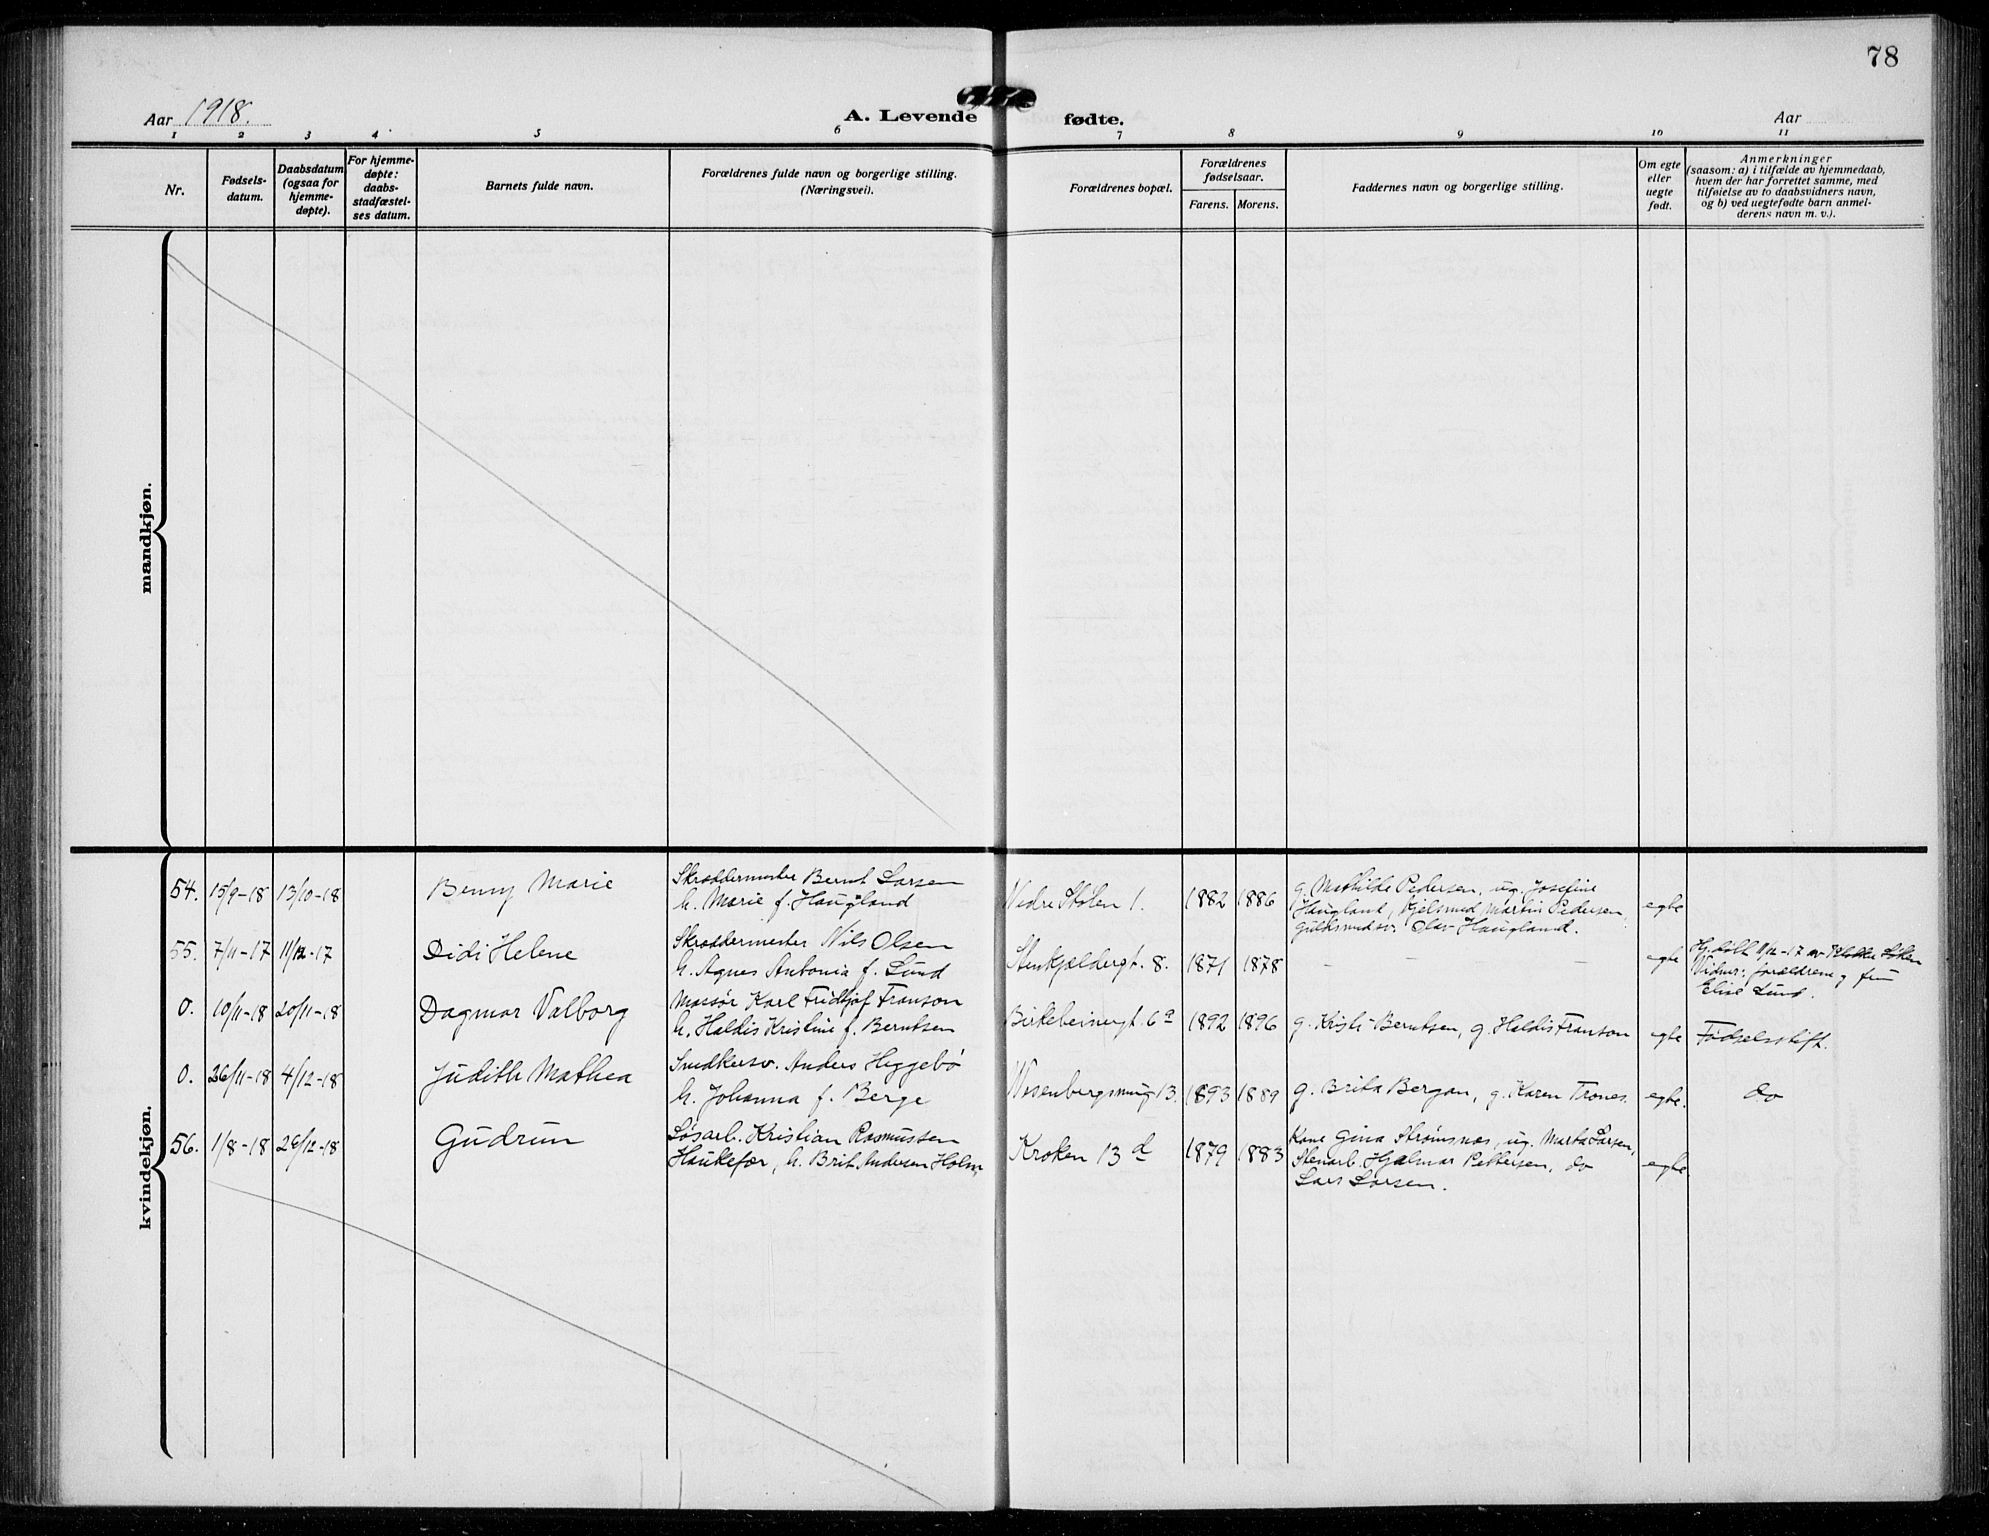 78
Aar 1918.
A. Levende fødte.
Aar
1 2 3 4 5 6 7 8 9 10 11
Nr.
Fødsels-
datum.
Daabsdatum
(ogsaa for
hjemme-
døpte).
For hjemme-
døpte:
daabs-
stadfæstel-
ses datum.
Barnets fulde navn.
Forældrenes fulde navn og borgerlige stilling.
(Næringsvei).
Forældrenes bopæl.
Forældrenes
fødselsaar.
Farens. Morens.
Faddernes navn og borgerlige stilling.
Om egte
eller
uegte
født.
Anmerkninger
(saasom: a) i tilfælde av hjemmedaab,
hvem der har forrettet samme, med
tilføielse av to daabsvidners navn,
og b) ved uegtefødte barn anmel-
derens navn m. v.).
mandkjøn.
kvindekjøn.
54. 15/9-18 13/10-18 Benny Marie
Skræddermester Bernt Larsen
h. Marie f. Haugland
Nedre Stølen 1. 1882 1886
g. Mathilde Pedersen, ug. Josefine
Haugland, Gjelsmed Martin Pedersen,
guldsmedsv. Olav Haugland.
egte
55. 7/11-17 11/12-17 Didi Helene
Skræddermester Nils Olsen
h. Agnes Antonia f. Lund
Stenkjeldergt. 8. 1871 1878 - - - egte
Hj. døbt 11/12-17 av
Vidner: forældrene, fru
Elise Lund.
0. 10/11-18 20/11-18 Dagmar Valborg
Massør Karl Fridtjof Franson
h. Haldis Kristine f. Berntsen
Birkebeinergt. 6a 1892 1896 g. Kristi Berntsen, g. Haldis Franson egte Fødselsstift.
0. 26/11-18 4/12-18 Judith Mathea
Snedkersv. Anders Heggebø
h. Johanna f. Berge
Wesenbergsmug 13. 1893 1889 g. Brita Bergan, g. Karen Trones. egte. do
56. 1/8-18 26/12-18 Gudrun
Løsarb. Kristian Rasmussen
Haukefær, h. Brit. Andersen Holm,
Kroken 13 d 1879 1883
Kone Gina Strømsnes, ug. Marta Larsen,
Stenarb. Hjalmar Pettersen, do
Lars Larsen.
egte.